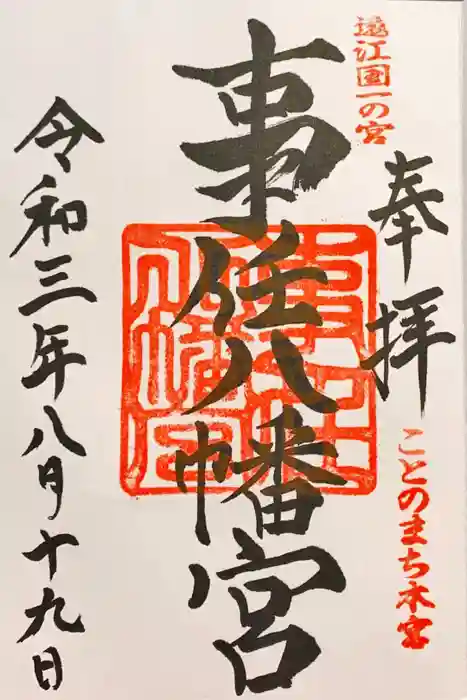 遠江国一の宮
奉拝
ことのまち本宮
事任八幡宮
令和三年八月十九日